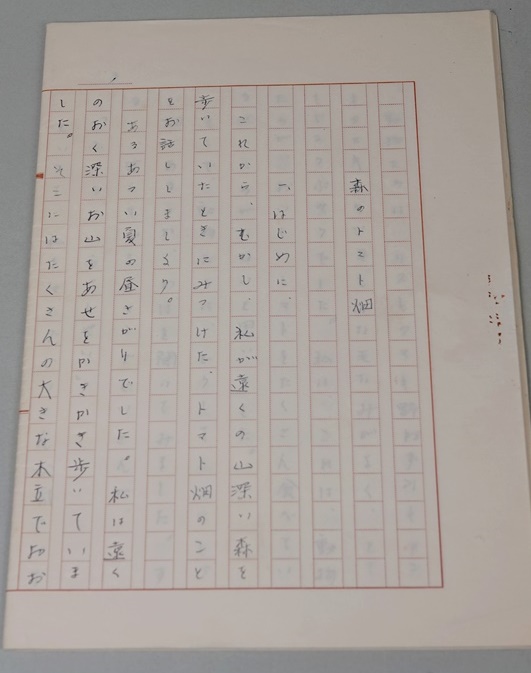 森のトマト畑
一、はじめに、
これから、むかし、私が遠くの山深い森を
歩いていたときにみつけた、トマト畑のこと
をお話ししましょう。
あるあつい夏の昼さがりでした。私は遠く
のおく深いお山をあせをかきかき歩いていま
した。そこにはたくさんの大きな木立でおお